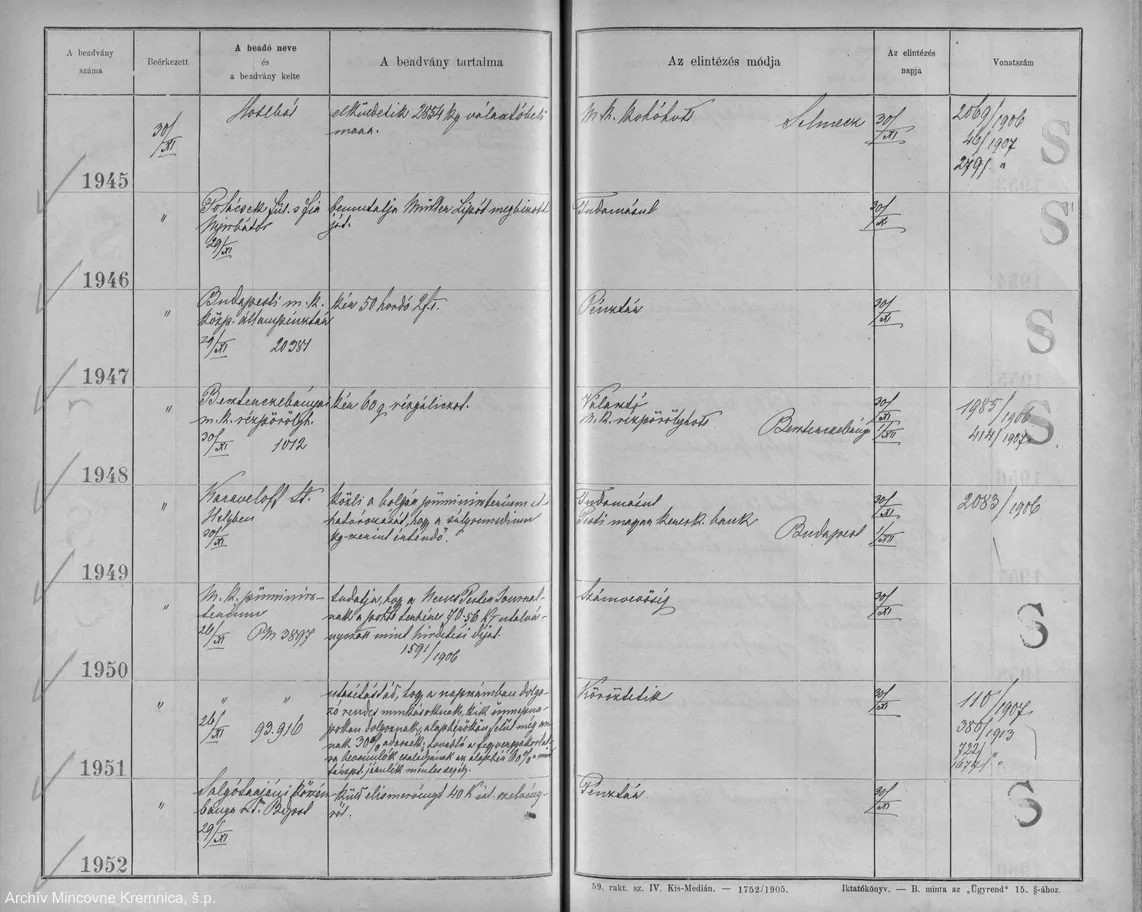 A beadvány
száma
Beérkezett
A beadó neve
és
a beadvány kelte
A beadvány tartalma
Az elintézés módja
Az elintézés
napja
Vonatszám
1945
30/XI
elküldetik 2854 kg választóbeli
M. k. Kohóhiv. Selmecz
30/XI
2069/1906
46/1907
2791 "
S
1946
"
29/XI
bemutatja Müller Lipót megbizott
ját.
Tudomásul
30/XI
S
1947
"
Budapesti m. k.
közp. állampénztár
29/XI 20381
kér 50 hordó 2 f.
Pénztár
30/XI
S
1948
"
Besztercebányai
m. k. rézpöröly
30/XI 1012
kér 60 q rézgáliczot.
Választó
Besztercebánya
30/XI
1/XII
1985/1906
414/1907
S
1949
"
Karaveloff St.
Helyben
30/XI
közli a bolgár püministerium el-
határozását, hogy a súlyremedium
kg-ként értendő.
Tudomásul
Pesti magyar keresk. bank
Budapest
30/XI
1/XII
2083/1906
1950
"
M. k. püminis-
terium
26/XI PM 3897
tudatja, hogy a Neues Pester Journal-
nak a portó terhére 70.56 K utalvá-
nyozott mint hirdetési díjat.
1591/1906
Számvevőség
30/XI
S
1951
"
" "
26/XI 93.916
utasítást ad, hogy a napszámban dolgo-
zó rendes munkásoknak, kik ünnepna-
pokon dolgoznak, alapbérükön felül még
30%
Köröztetik
30/XI
110/1907
380/1913
722/ "
1677/ "
1952
"
Salgótarjáni Kőszén-
bánya r. t. Bpest
29/XI
küld elismervényt 40 K
ről.
Pénztár
30/XI
S
59. rakt. sz. IV. Kis-Medián. — 1752/1905.
Iktatókönyv. — B. minta az „Ügyrend" 15. §-ához.
Archív Mincovne Kremnica, š.p.